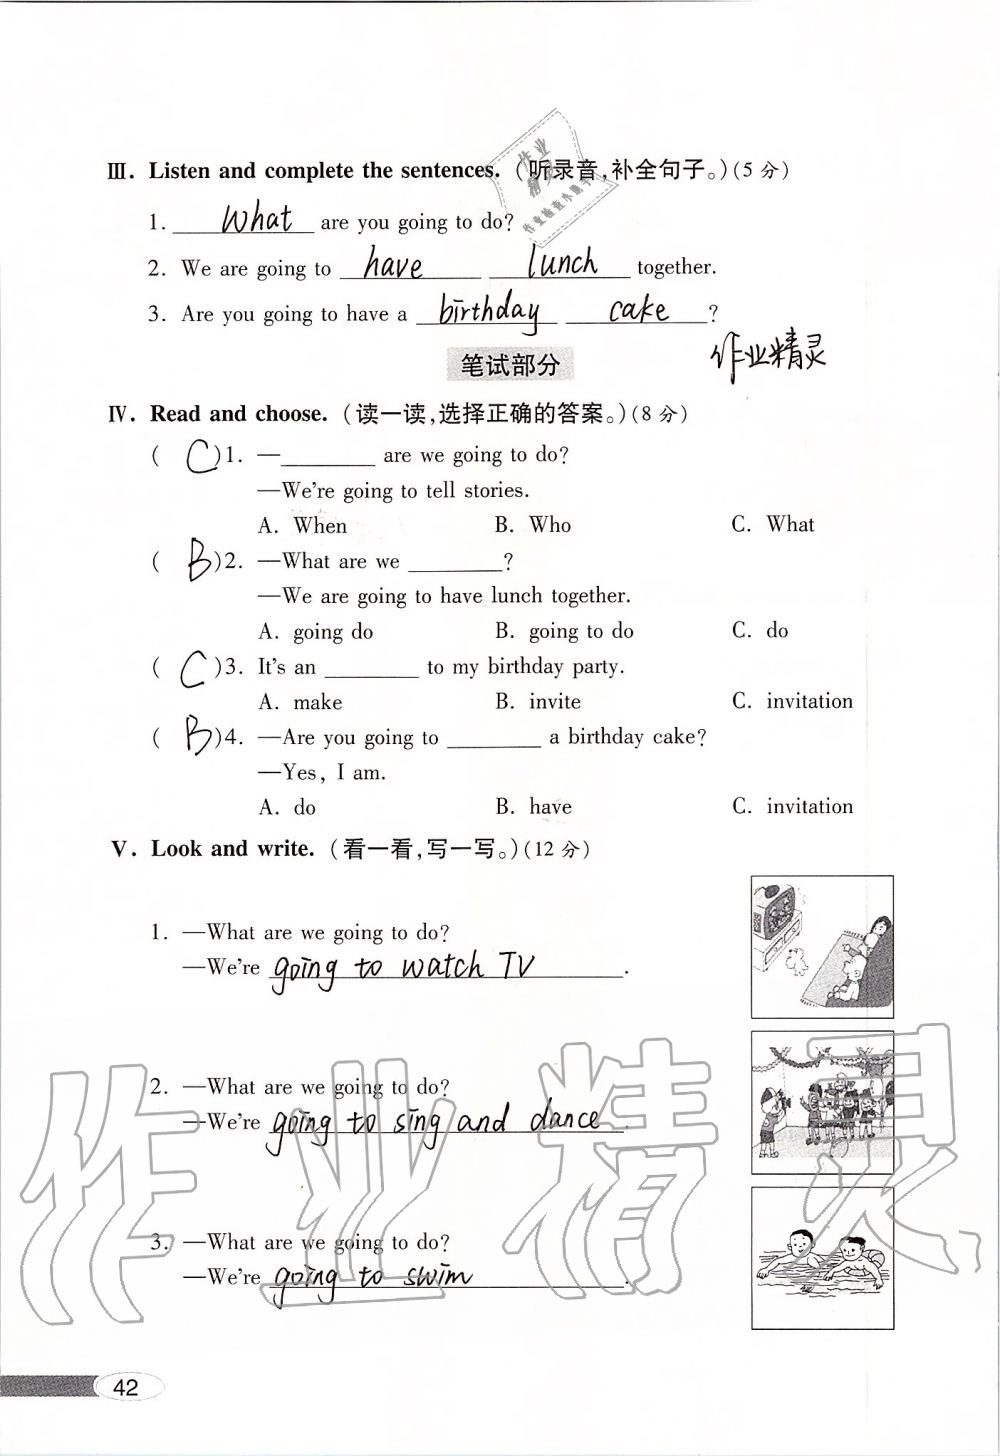 Ⅲ. Listen and complete the sentences. (听录音,补全句子。)(5分)
1. What are you going to do?
2. We are going to have lunch together.
3. Are you going to have a birthday cake?
作业精灵
笔试部分
Ⅳ. Read and choose. (读一读,选择正确的答案。)(8分)
( C )1. —________ are we going to do?
—We're going to tell stories.
A. When B. Who C. What
( B )2. —What are we ________?
—We are going to have lunch together.
A. going do B. going to do C. do
( C )3. It's an ________ to my birthday party.
A. make B. invite C. invitation
( B )4. —Are you going to ________ a birthday cake?
—Yes, I am.
A. do B. have C. invitation
Ⅴ. Look and write. (看一看,写一写。)(12分)
1. —What are we going to do?
—We're going to watch TV.
2. —What are we going to do?
—We're going to sing and dance.
3. —What are we going to do?
—We're going to swim.
作业精灵
42